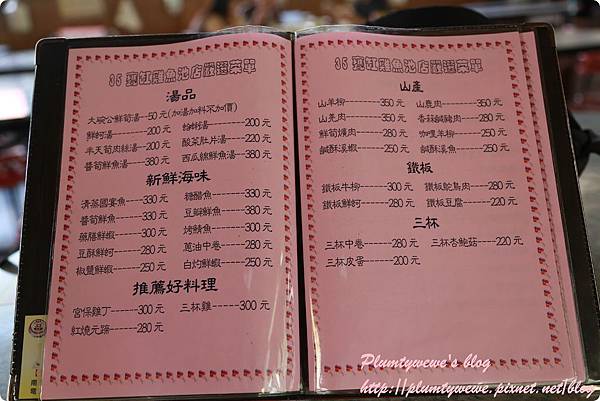 35 甕缸雞魚池店嚴選菜單
湯品
大碗公鮮筍湯--50元(加湯加料不加價)
鮮蚵湯------200元
蛤蜊湯------200元
半天筍肉絲湯--200元
酸菜肚片湯---220元
醬筍鮮魚湯---380元
西瓜綿鮮魚湯--380元
新鮮海味
清蒸國宴魚---330元
糖醋魚------330元
醬筍鮮魚-----330元
豆瓣鮮魚-----380元
藥膳鮮蝦-----300元
烤鯖魚------300元
豆酥鮮蚵-----280元
蔥油中卷-----280元
椒鹽鮮蝦-----250元
白灼鮮蝦-----250元
推薦好料理
宮保雞丁-----300元
三杯雞------300元
紅燒元蹄-----280元
35 甕缸雞魚池店嚴選菜單
山產
山羊柳------350元
山鹿肉------350元
山羌肉------350元
香蒜鹹豬肉---280元
鮮筍爌肉-----280元
咖哩羊柳-----250元
鹹酥溪蝦-----250元
鹹酥溪魚-----250元
鐵板
鐵板牛柳-----300元
鐵板鴕鳥肉---280元
鐵板鮮蚵-----280元
鐵板豆腐-----220元
三杯
三杯中卷-----280元
三杯杏鮑菇---220元
三杯皮蛋-----200元
Plumtywewe's blog
http://plumtywewe.pixnet.net/blog